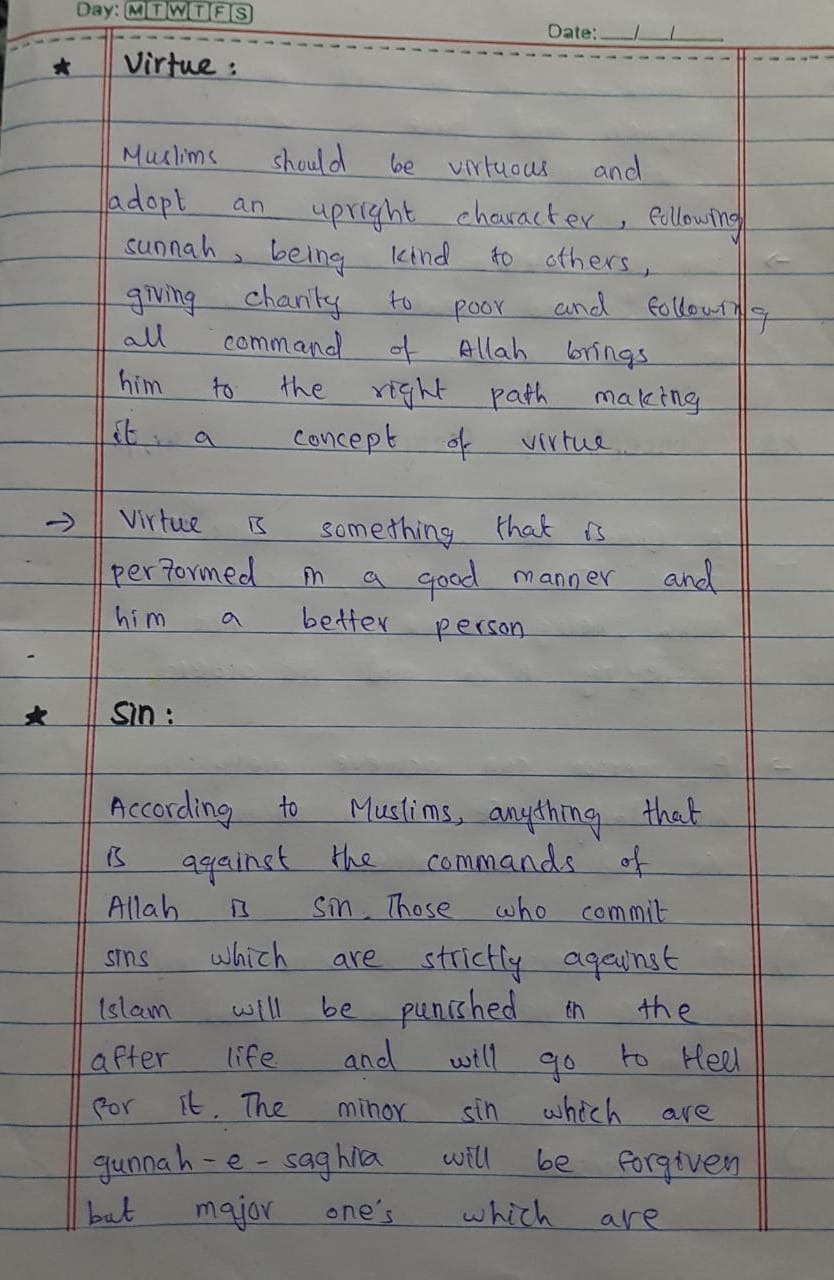 Day: M T W T F S
Date: __/__/__
★ Virtue :
Muslims should be virtuous and
adopt an upright character, following
sunnah, being kind to others,
giving charity to poor and following
all command of Allah brings
him to the right path making
it a concept of virtue.
→ Virtue is something that is
performed in a good manner and
him a better person
★ Sin :
According to Muslims, anything that
is against the commands of
Allah is sin. Those who commit
sins which are strictly against
Islam will be punished in the
after life and will go to Hell
for it. The minor sin which are
gunnah-e-saghira will be forgiven
but major one's which are